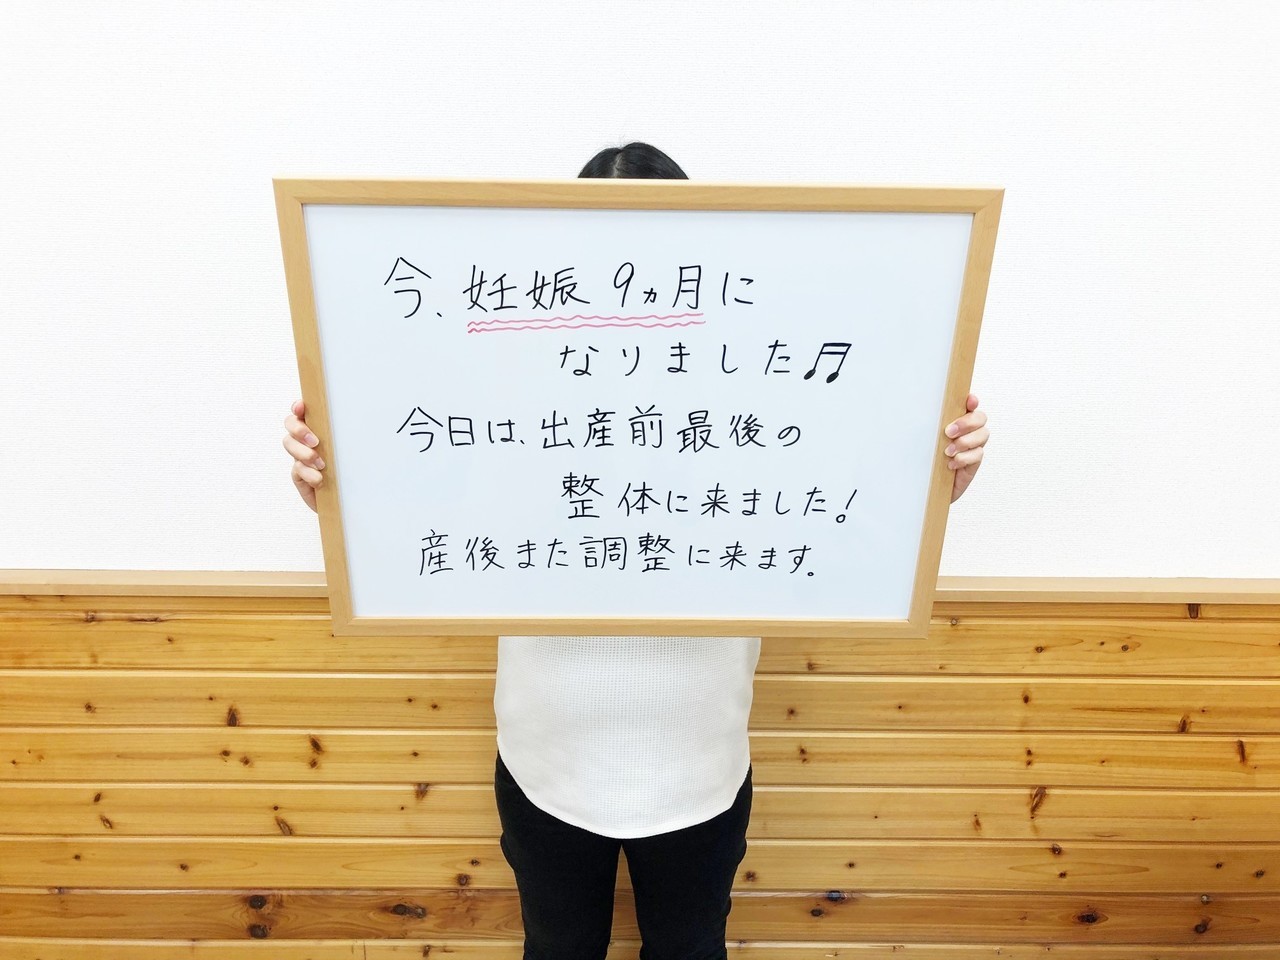 今、妊娠9ヵ月に
なりました♬
今日は、出産前最後の
整体に来ました!
産後また調整に来ます。